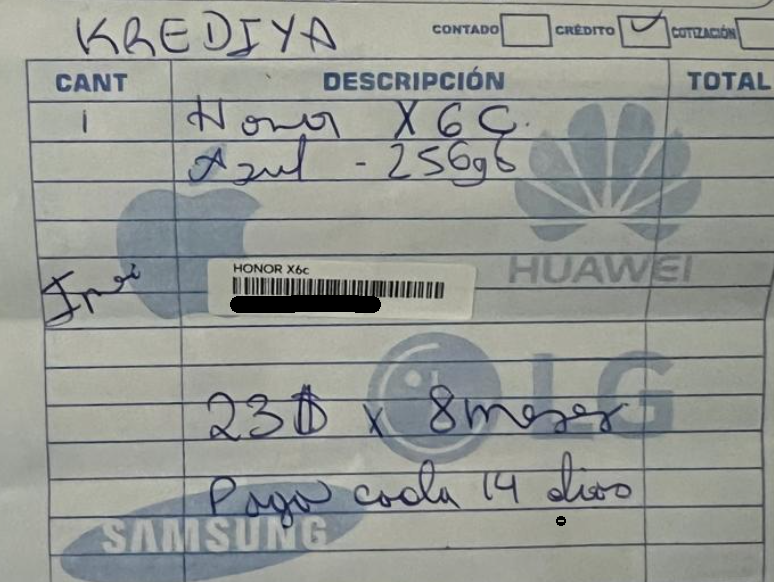 KREDIYA
CONTADO CRÉDITO COTIZACIÓN
CANT DESCRIPCIÓN TOTAL
1 Honor X6C.
Azul - 256gb
HUAWEI
HONOR X6c
Imei
LG
23$ x 8 meses
Pagar cada 14 dias
SAMSUNG